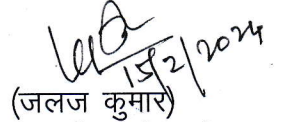 15/2/2024
(जलज कुमार)